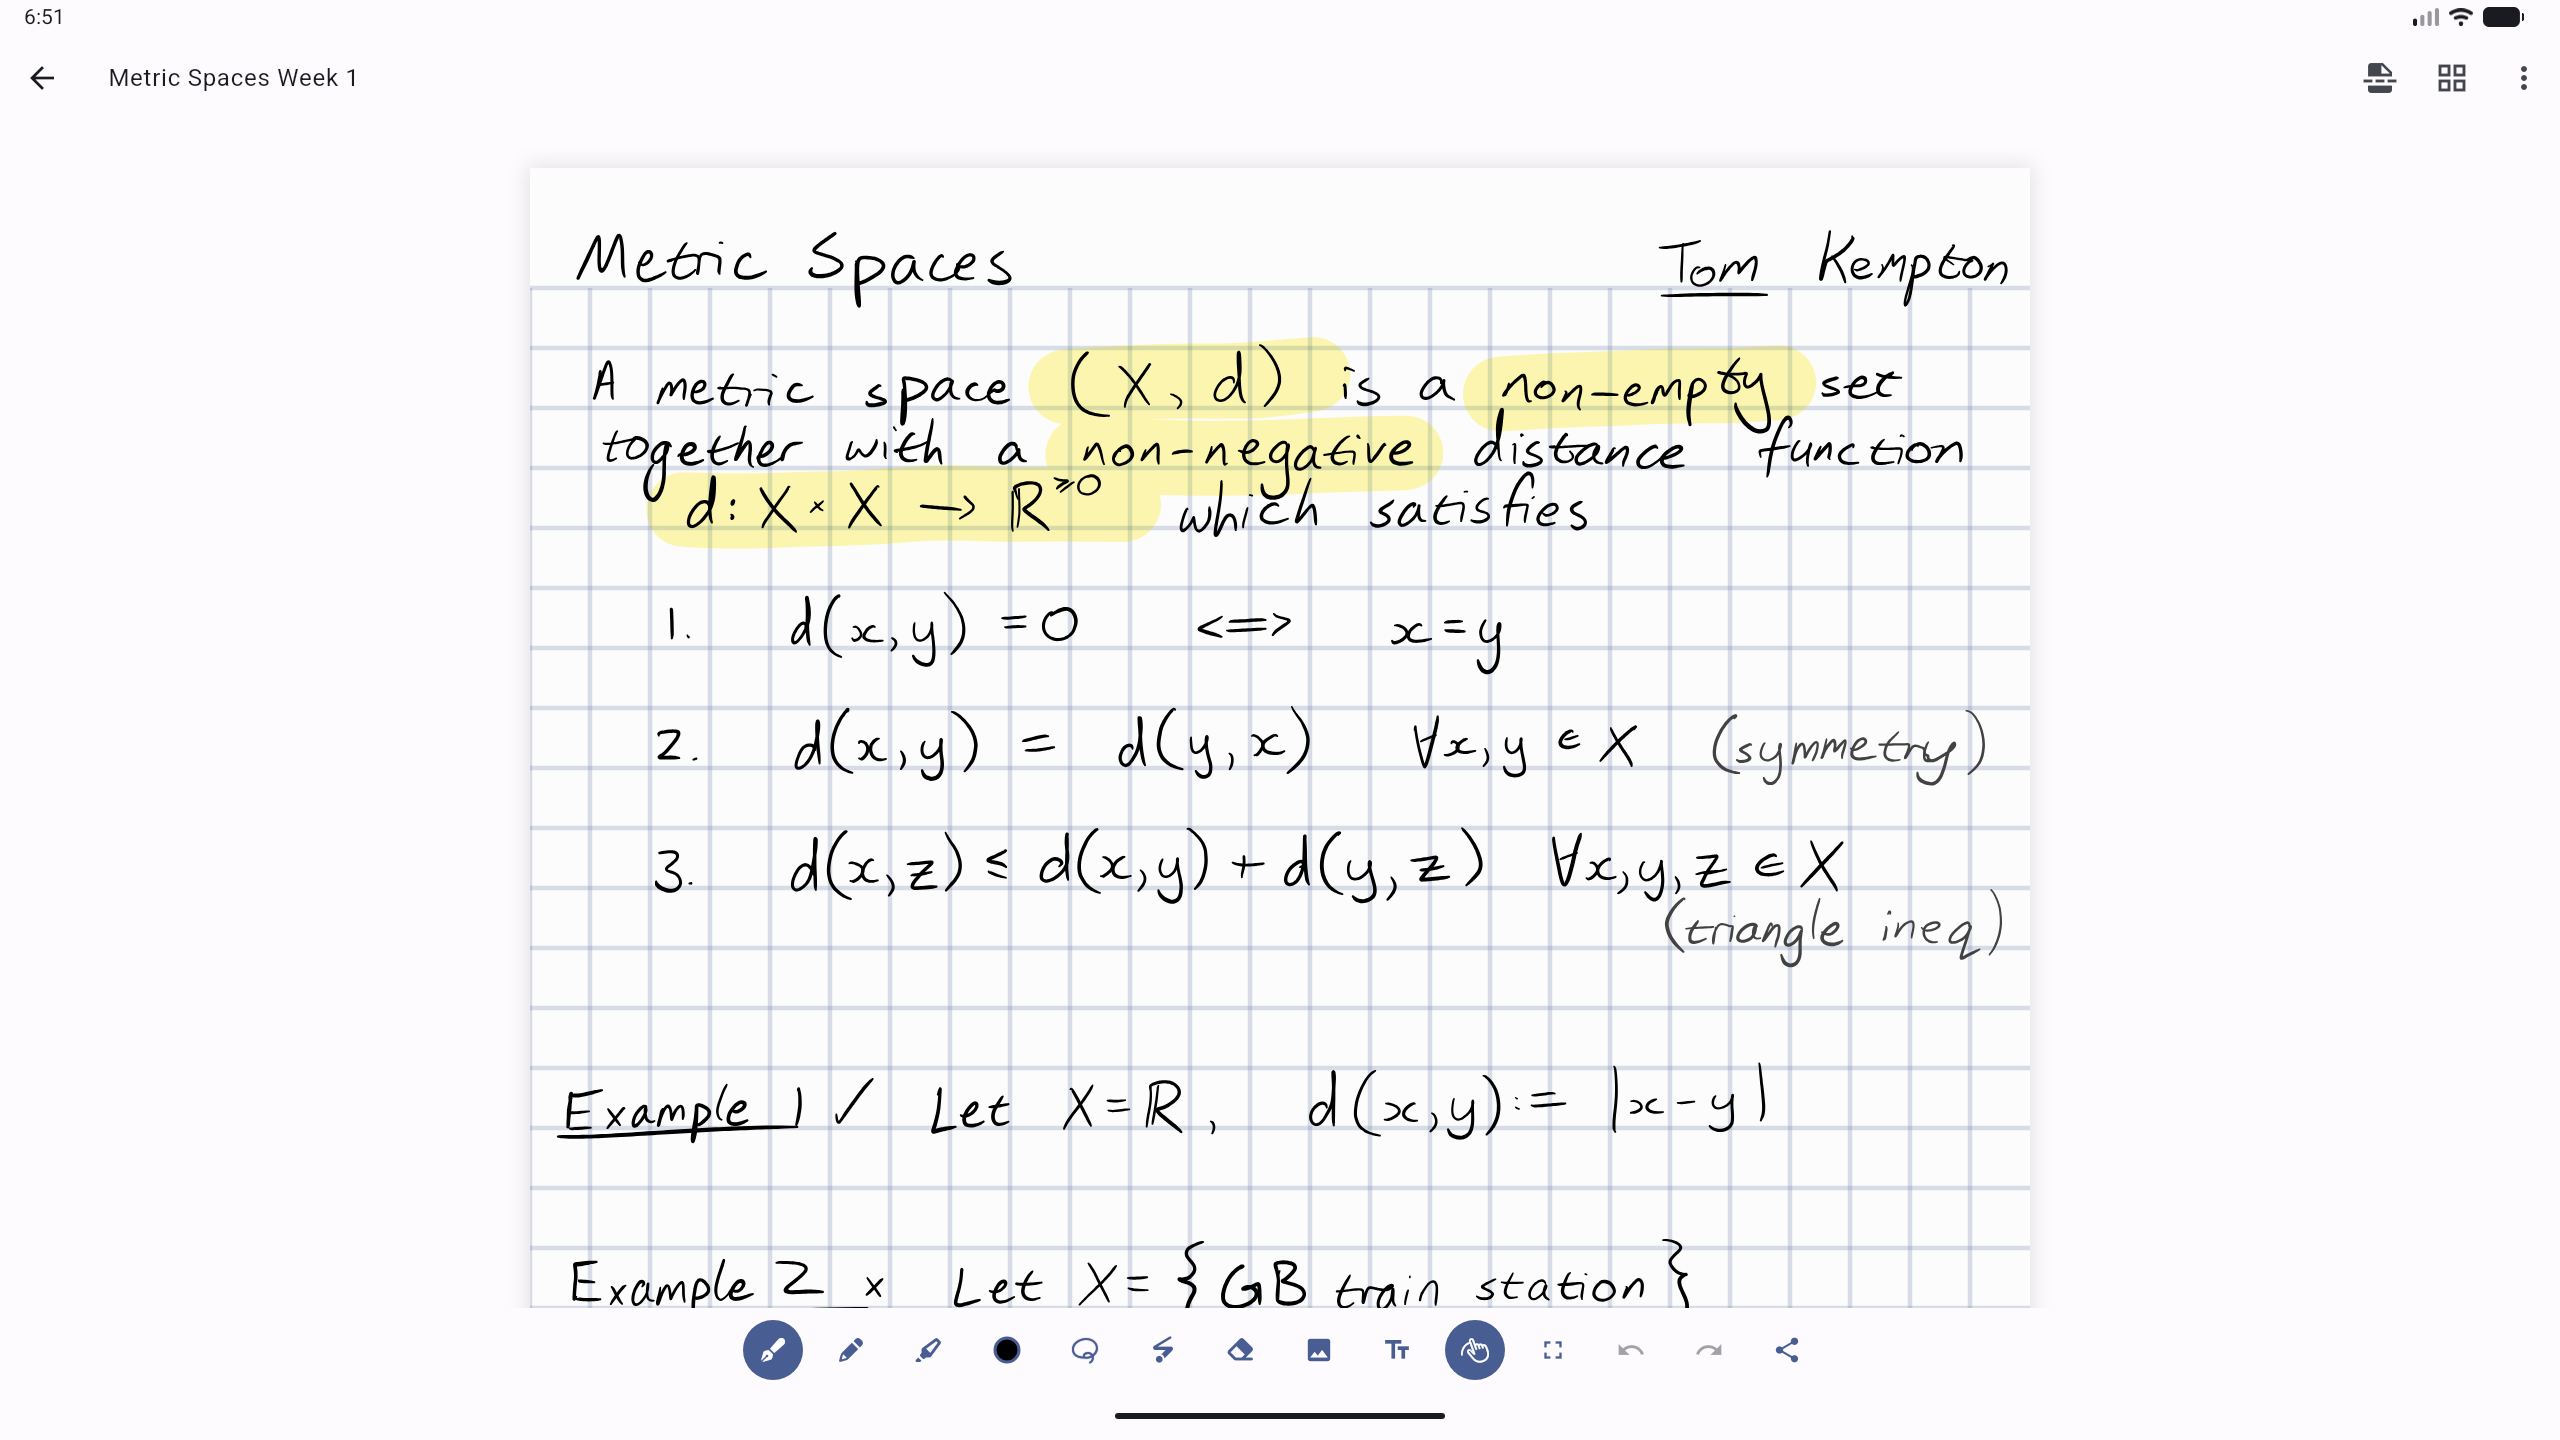 6:51
Metric Spaces Week 1
Metric Spaces Tom Kempton
A metric space (X, d) is a non-empty set
together with a non-negative distance function
d: X × X → ℝ^≥0 which satisfies
1. d(x,y) = 0 <=> x = y
2. d(x,y) = d(y,x) ∀x,y ∈ X (symmetry)
3. d(x,z) ≤ d(x,y) + d(y,z) ∀x,y,z ∈ X
(triangle ineq)
Example 1 ✓ Let X = ℝ, d(x,y) := |x-y|
Example 2 × Let X = {GB train station}
Tт